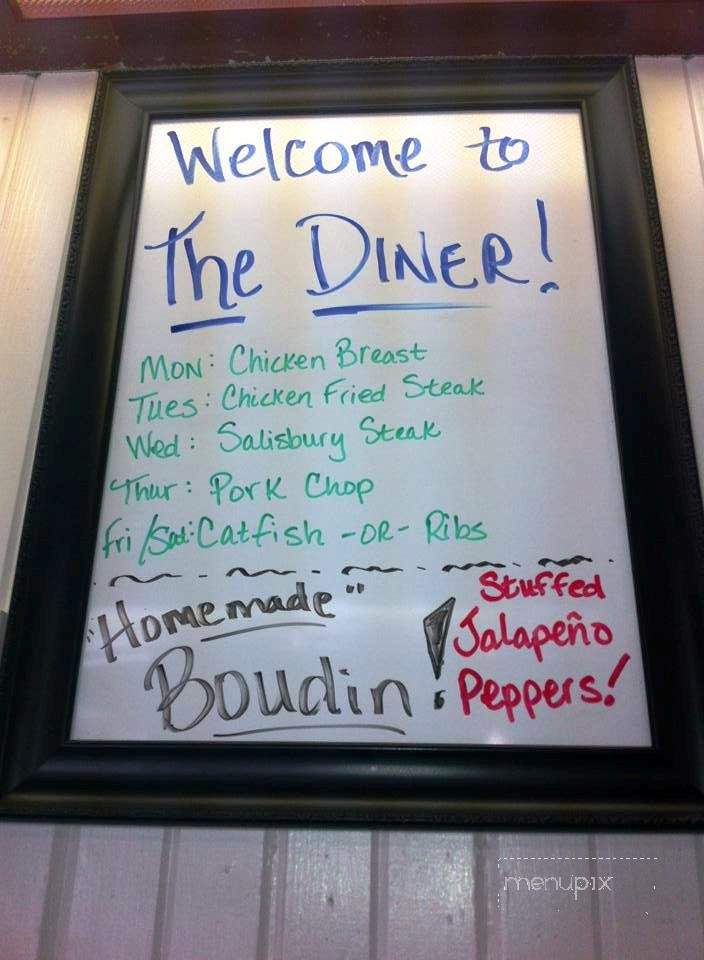 Welcome to
The DINER!
MON: Chicken Breast
Tues: Chicken Fried Steak
Wed: Salisbury Steak
Thur: Pork Chop
Fri/Sat: Catfish -OR- Ribs
"Homemade"
Boudin!
Stuffed
Jalapeño
Peppers!
menupix